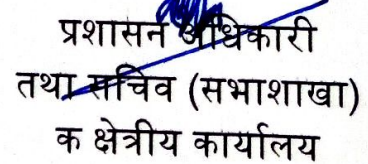 प्रशासन अधिकारी
तथा सचिव (सभाशाखा)
क क्षेत्रीय कार्यालय